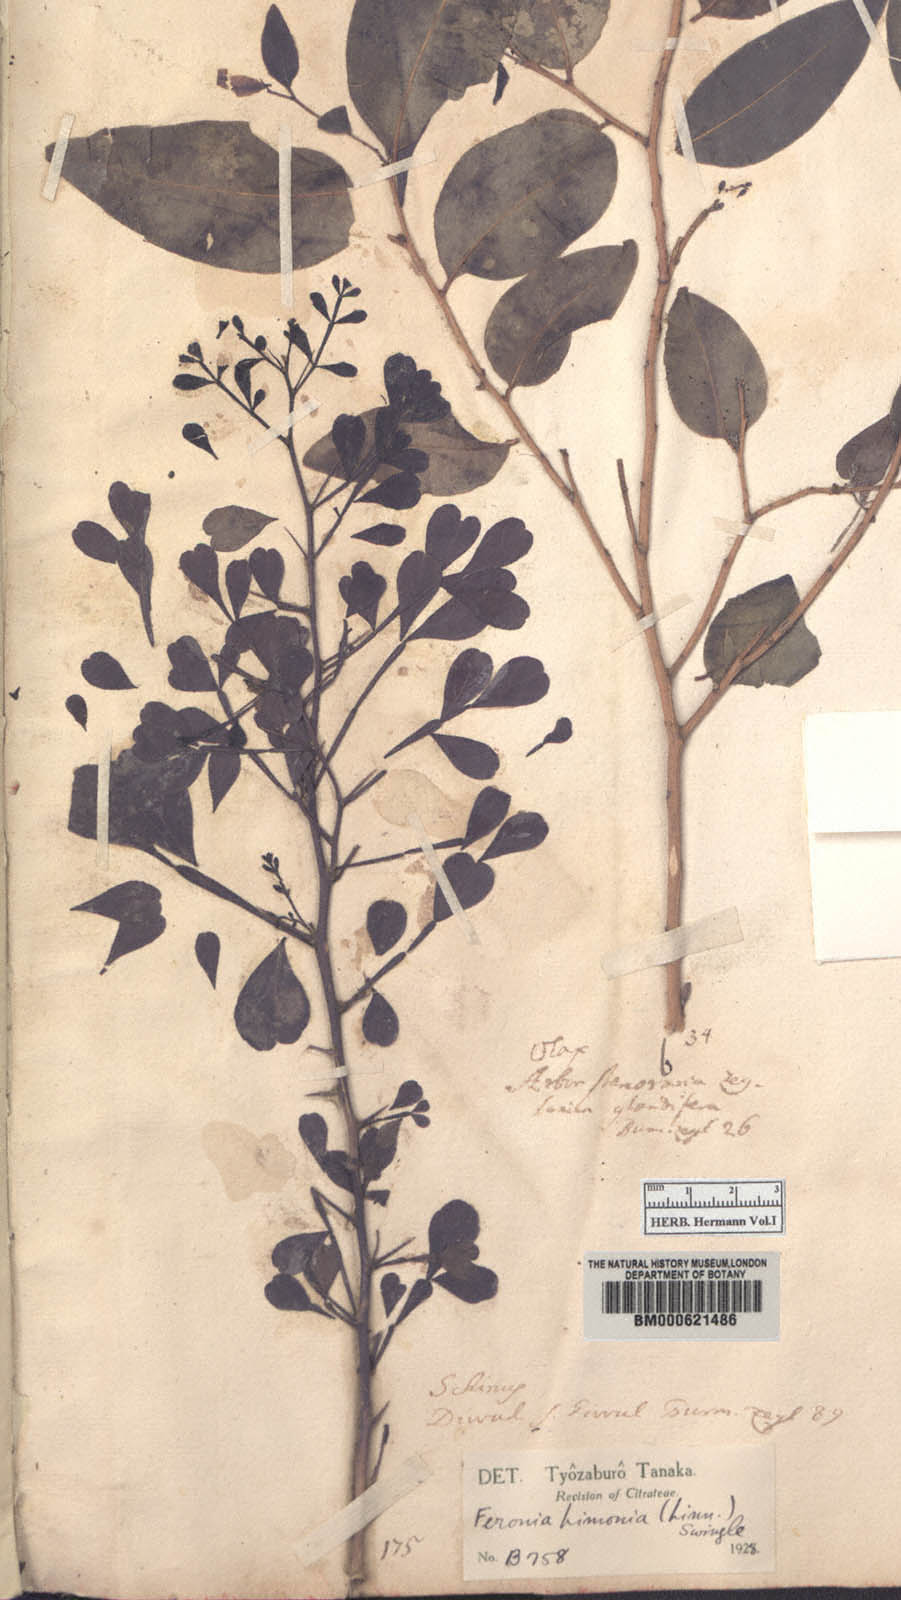 34
6
Olax
Arbor zey-
lanica glandifera
Burm. zeyl 26
mm 1 2 3
HERB. Hermann Vol.I
THE NATURAL HISTORY MUSEUM, LONDON
DEPARTMENT OF BOTANY
BM000621486
Schinus
Diwul s. Tiwul Burm. zeyl 89
DET. Tyôzaburô Tanaka.
Revision of Citrateae.
Feronia Limonia (Linn.)
Swingle
No. B758 1928.
175